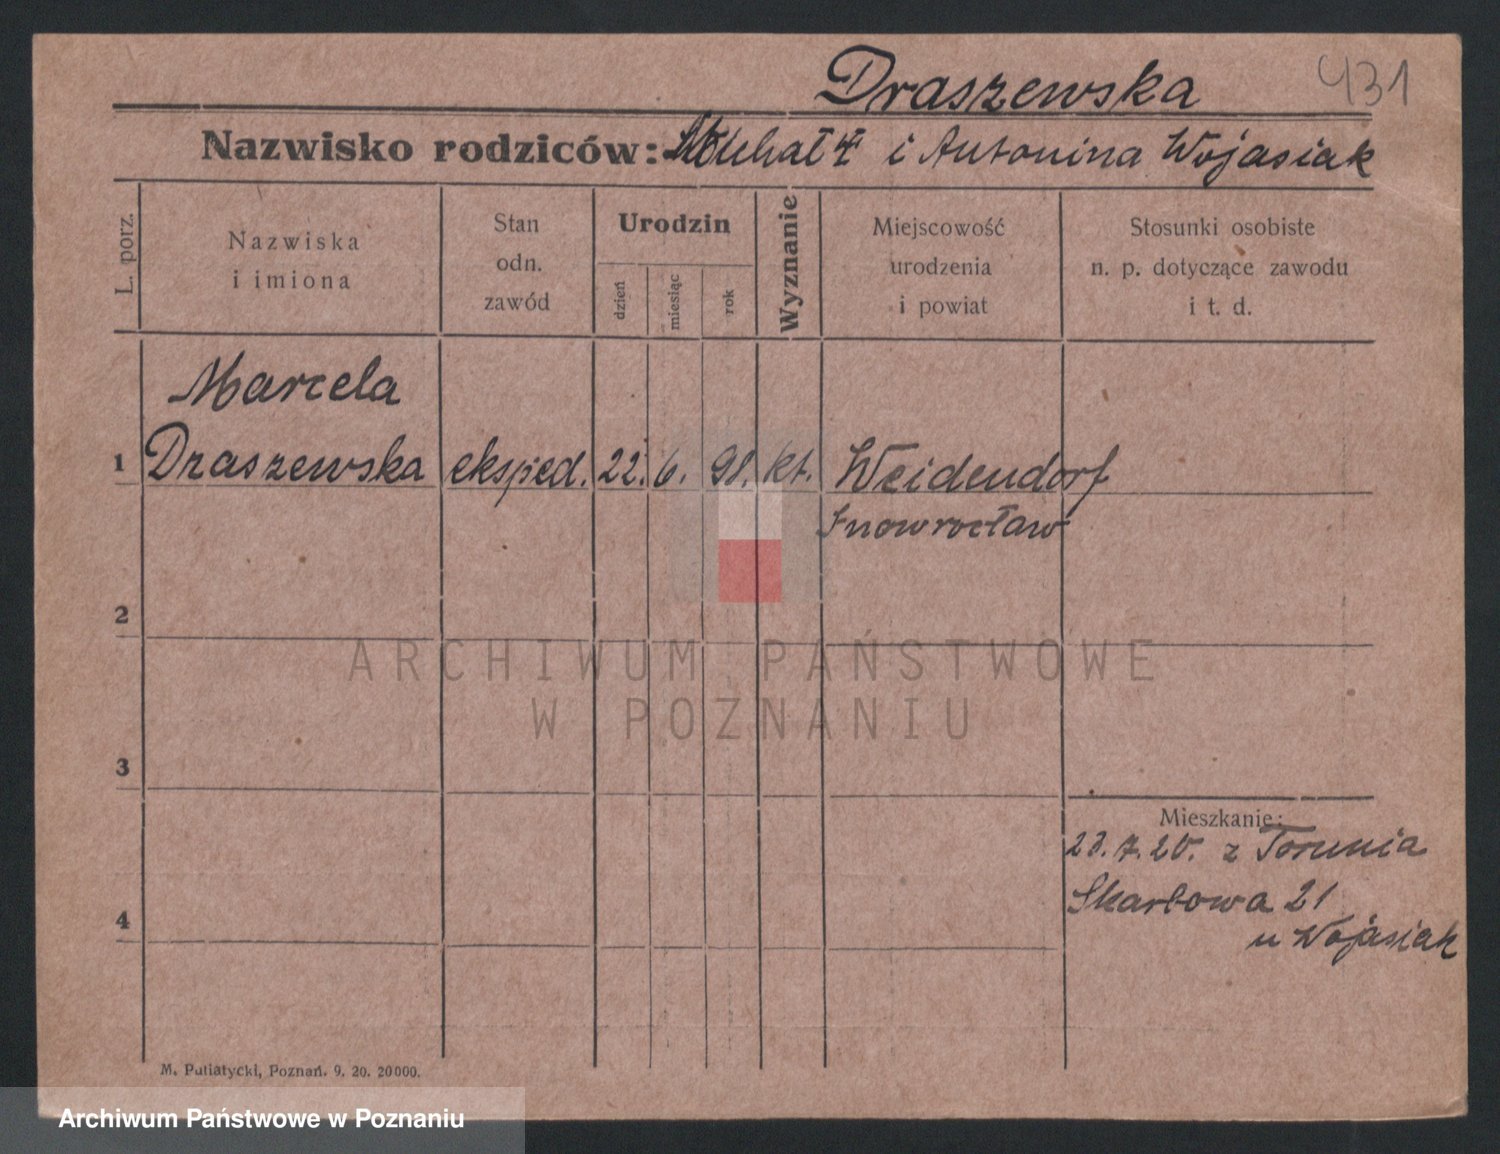 Draszewska 431
Nazwisko rodziców: Michał i Antonina Wojasiak
L. porz.
Nazwiska
i imiona
Stan
odn.
zawód
Urodzin
dzień
miesiąc
rok
Wyznanie
Miejscowość
urodzenia
i powiat
Stosunki osobiste
n. p. dotyczące zawodu
i t. d.
Marcela
1 Draszewska eksped. 22. 6. 98. kt. Weidendorf
Inowrocław
2
ARCHIWUM PAŃSTWOWE
W POZNANIU
3
Mieszkanie:
23.7.20. z Torunia
4 Skarbowa 21
u Wojasiak
M. Putiatycki, Poznań. 9. 20. 20000.
Archiwum Państwowe w Poznaniu